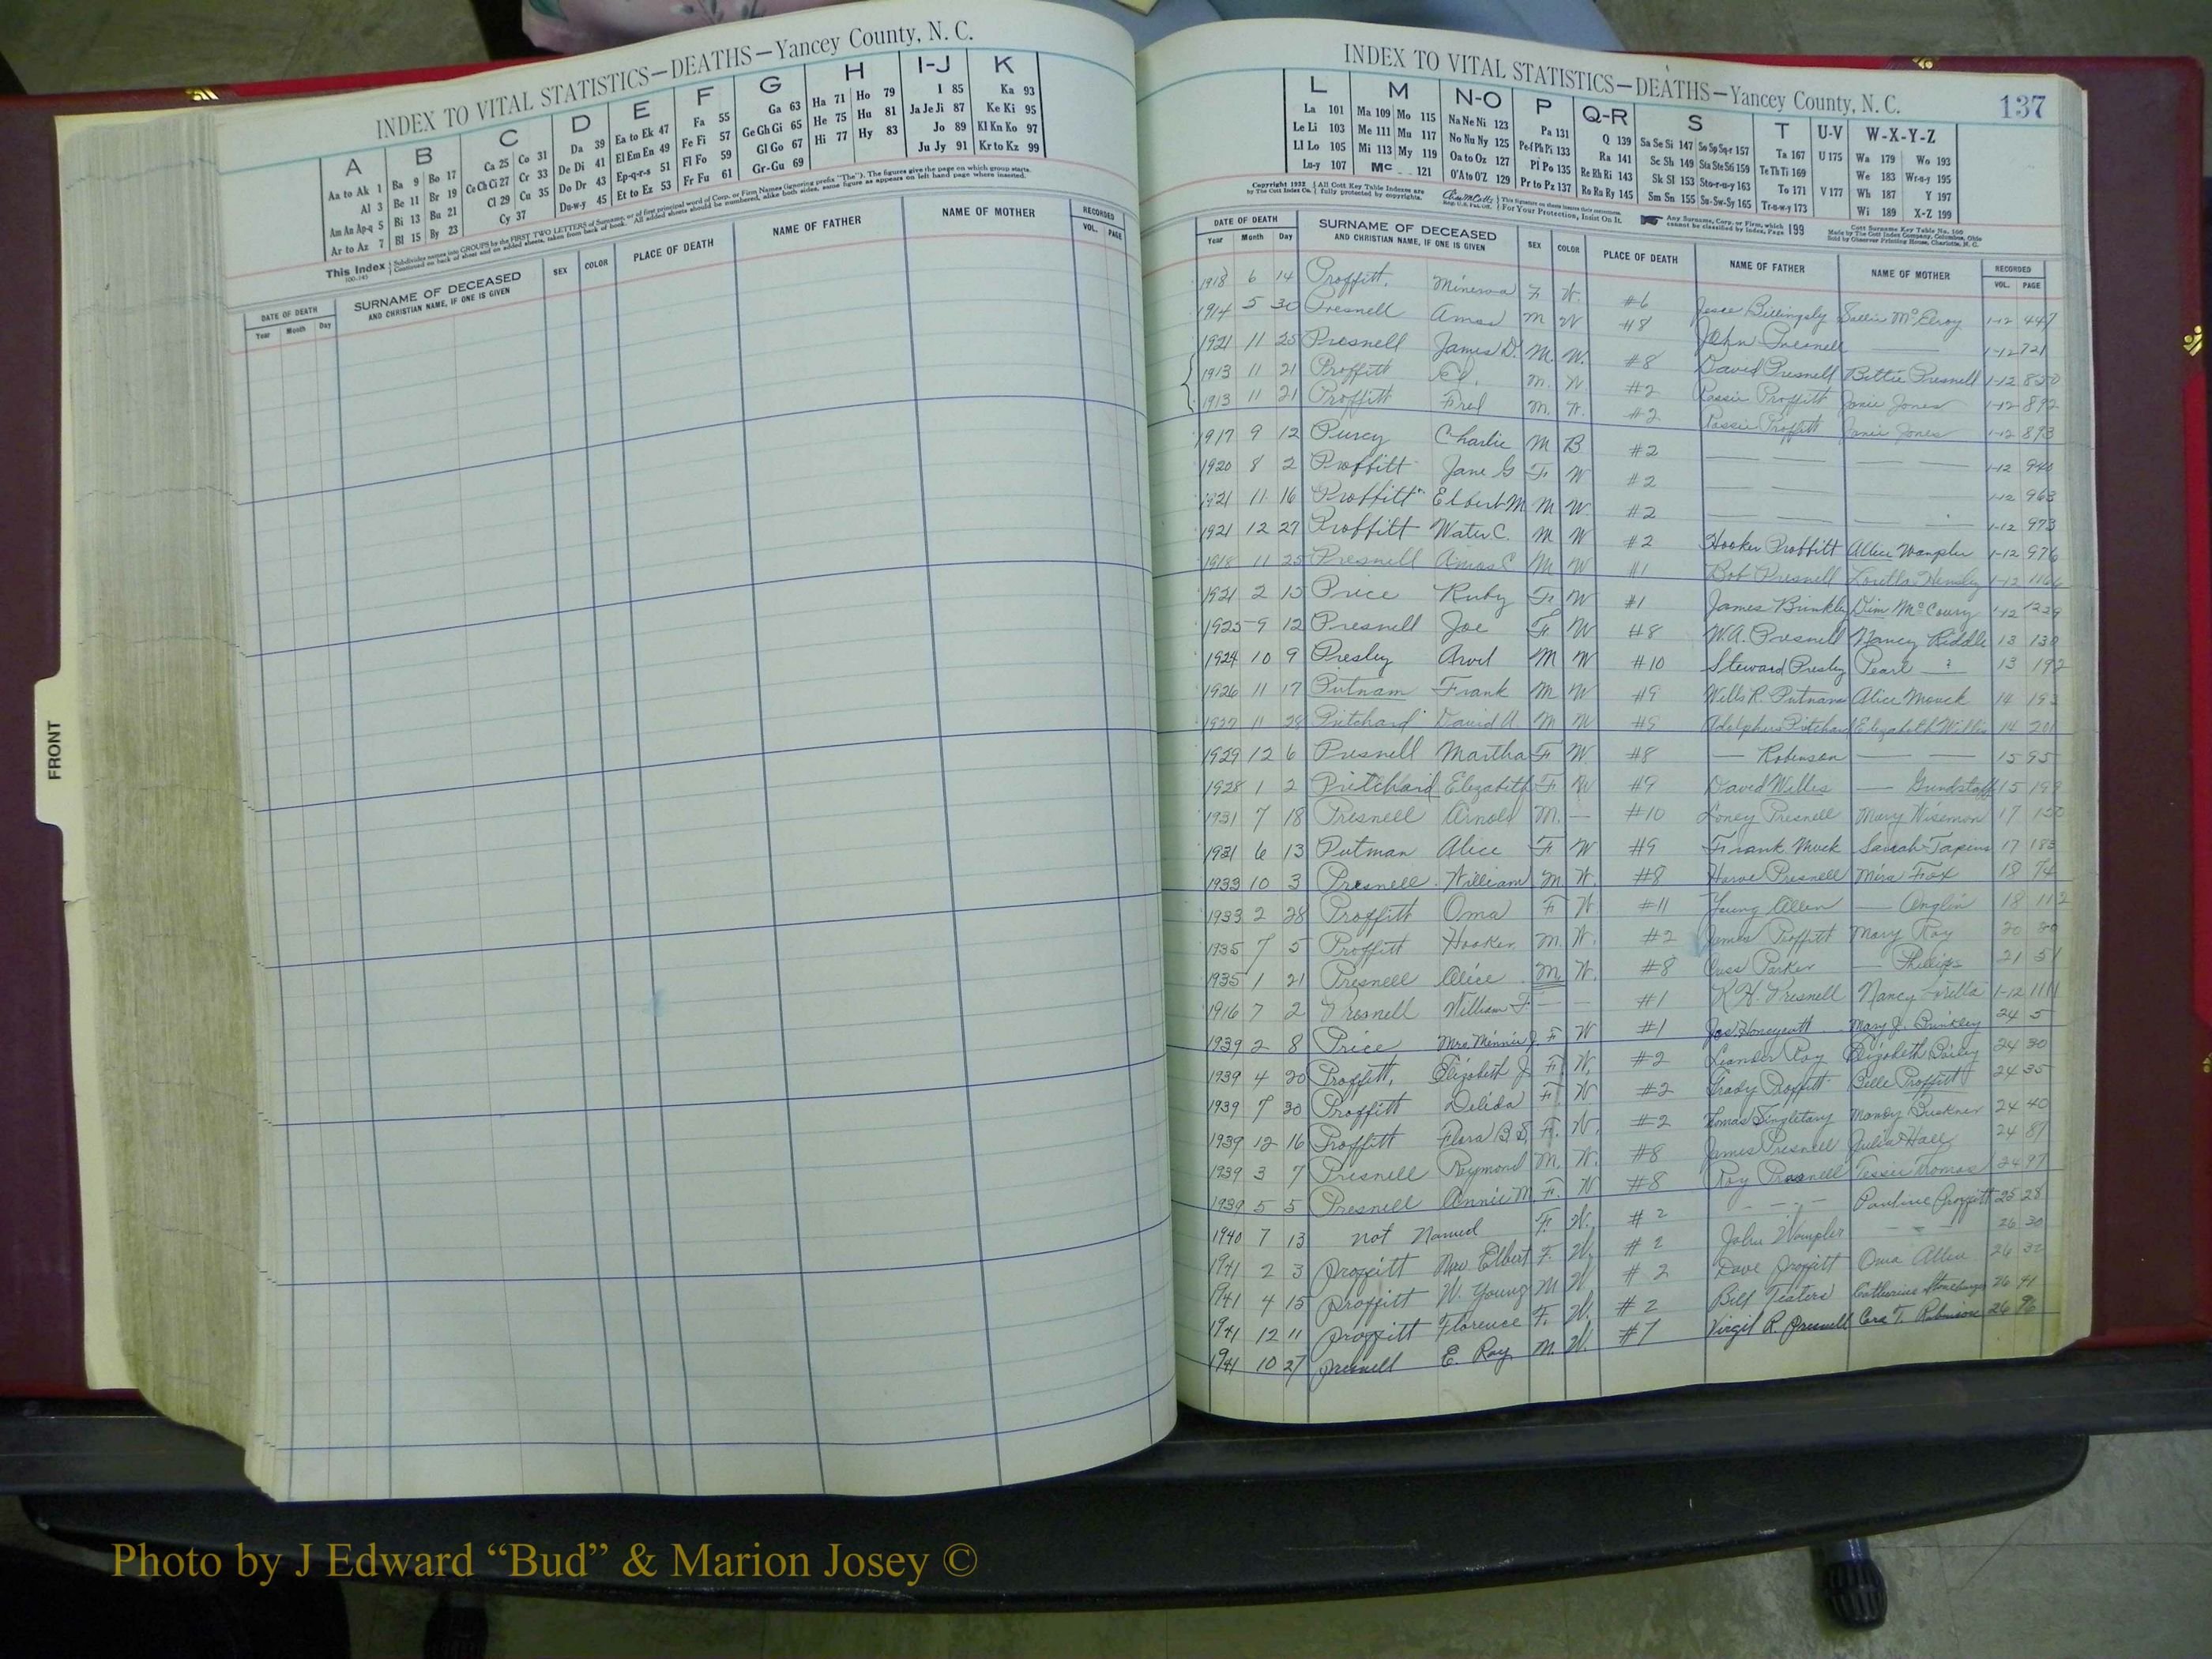 INDEX TO VITAL STATISTICS—DEATHS—Yancey County, N. C.
A B C D E F G H I-J K
Aa to Ak 1 Ba 9 Bo 17 Ca 25 Co 31 Da 39 Ea to Ek 47 Fa 55 Ga 63 Ha 71 Ho 79 I 85 Ka 93
Al 3 Be 11 Br 19 Ce Ch Ci 27 Cr 33 De Di 41 El Em En 49 Fe Fi 57 Ge Gh Gi 65 He 75 Hu 81 Ja Je Ji 87 Ke Ki 95
Am An Ap-q 5 Bi 13 Bu 21 Cl 29 Cu 35 Do Dr 43 Ep-q-r-s 51 Fl Fo 59 Gl Go 67 Hi 77 Hy 83 Jo 89 Kl Kn Ko 97
Ar to Az 7 Bl 15 By 23 Cy 37 Du-w-y 45 Et to Ez 53 Fr Fu 61 Gr-Gu 69 Ju Jy 91 Kr to Kz 99
This Index Subdivides names into GROUPS by the FIRST TWO LETTERS of Surname, or of first principal word of Corp. or Firm Names (ignoring prefix "The"). The figures give the page on which group starts.
Continued on back of sheet and on added sheets, taken from back of book. All added sheets should be numbered, alike both sides, same figure as appears on left hand page where inserted.
DATE OF DEATH SURNAME OF DECEASED SEX COLOR PLACE OF DEATH NAME OF FATHER NAME OF MOTHER RECORDED
Year Month Day AND CHRISTIAN NAME, IF ONE IS GIVEN VOL. PAGE
FRONT
INDEX TO VITAL STATISTICS—DEATHS—Yancey County, N. C. 137
L M N-O P Q-R S T U-V W-X-Y-Z
La 101 Ma 109 Mo 115 Na Ne Ni 123 Pa 131 Q 139 Sa Se Si 147 So Sp Sq-r 157 Ta 167 U 175 Wa 179 Wo 193
Le Li 103 Me 111 Mu 117 No Nu Ny 125 Pe-f Ph Pi 133 Ra 141 Sc Sh 149 Sta Ste Sti 159 Te Th Ti 169 We 183 Wr-u-y 195
Ll Lo 105 Mi 113 My 119 Oa to Oz 127 Pl Po 135 Re Rh Ri 143 Sk Sl 153 Sto-r-u-y 163 To 171 V 177 Wh 187 Y 197
Lu-y 107 Mc 121 O'A to O'Z 129 Pr to Pz 137 Ro Ru Ry 145 Sm Sn 155 Su-Sw-Sy 165 Tr-u-w-y 173 Wi 189 X-Z 199
Copyright 1932 by The Cott Index Co. All Cott Key Table Indexes are fully protected by copyrights. For Your Protection, Insist On It. Any Surname, Corp. or Firm, which cannot be classified by Index, Page 199
Cott Surname Key Table No. 100 Made by The Cott Index Company, Columbus, Ohio Sold by Observer Printing House, Charlotte, N. C.
DATE OF DEATH SURNAME OF DECEASED SEX COLOR PLACE OF DEATH NAME OF FATHER NAME OF MOTHER RECORDED
Year Month Day AND CHRISTIAN NAME, IF ONE IS GIVEN VOL. PAGE
1918 6 14 Proffitt, Minerva F W. #6 Jesse Billingsly Sallie McElroy 1-12 447
1914 5 30 Presnell Amos M W #8 John Presnell — 1-12 721
1921 11 25 Presnell James D. M. W. #8 David Presnell Bettie Presnell 1-12 820
1913 11 21 Proffitt Ed. M. W. #2 Rossie Proffitt Janie Jones 1-12 892
1913 11 21 Proffitt Fred M. W. #2 Rossie Proffitt Janie Jones 1-12 893
1917 9 12 Purcy Charlie M B. #2 — — 1-12 940
1920 8 2 Proffitt Jane G F. W #2 — — 1-12 963
1921 11 16 Proffitt Elbert M M W. #2 — — 1-12 973
1921 12 27 Proffitt Water C. M W #2 Hooker Proffitt Allice Wampler 1-12 976
1918 11 25 Presnell Amos C M W #1 Bob Presnell Loretta Hensley 1-12 1166
1921 2 13 Price Ruby F. W #1 James Brinkley Dim McCoury 1-12 1229
1925 9 12 Presnell Joe F. W #8 W.A. Presnell Nancy Riddle 13 130
1924 10 9 Presley Arvil M W #10 Steward Presley Pearl ? 13 192
1926 11 17 Putnam Frank M W #9 Wills R. Putnam Alice Mouck 14 193
1927 11 28 Pritchard David A. M W #9 Adolphus Pritchard Elizabeth Willis 14 201
1929 12 6 Presnell Martha F W. #8 — Robinson — 15 95
1928 1 2 Pritchard Elizabeth F W #9 David Willis — Grindstaff 15 199
1931 7 18 Presnell Arnold M. — #10 Loney Presnell Mary Wiseman 17 150
1931 6 13 Putman Alice F W #9 Frank Muck Sarah Tapins 17 183
1933 10 3 Presnell William M W. #8 Harve Presnell Mira Fox 18 74
1933 2 28 Proffitt Oma F W #11 Young Allen — Anglin 18 112
1935 7 5 Proffitt Hooker M. W. #2 James Proffitt Mary Ray 20 20
1935 1 21 Presnell Alice M W. #8 Cuss Parker — Phillips 21 51
1916 7 2 Presnell William F. — — #1 R.H. Presnell Nancy Loretta 1-12 1111
1939 2 8 Price Mrs. Minnie J. F W #1 Jos. Honeycutt Mary J. Brinkley 24 5
1939 4 20 Proffitt, Elizabeth J. F. W. #2 Leander Ray Elizabeth Bailey 24 30
1939 7 30 Proffitt Delida F W #2 Grady Proffitt Belle Proffitt 24 35
1939 12 16 Proffitt Flora B.S. F. W. #2 Thomas Singletary Mandy Buckner 24 40
1939 3 7 Presnell Raymond M. W. #8 James Presnell Julia Hall 24 87
1939 5 5 Presnell Annie M F. W #8 Roy Presnell Tessie Thomas 24 97
1940 7 13 not Named F. W. #2 - - - Pauline Proffitt 25 28
1941 2 3 Proffitt Mrs. Elbert F. W. #2 John Wampler - - - 26 30
1941 4 15 Proffitt W. Young M W #2 Dave Proffitt Oma Allen 26 32
1941 12 11 Proffitt Florence F. W. #2 Bill Teaters Catherine 26 41
1941 10 27 Presnell E. Ray M. W. #7 Virgil R. Presnell Cora T. Robinson 26 96
Photo by J Edward “Bud” & Marion Josey ©